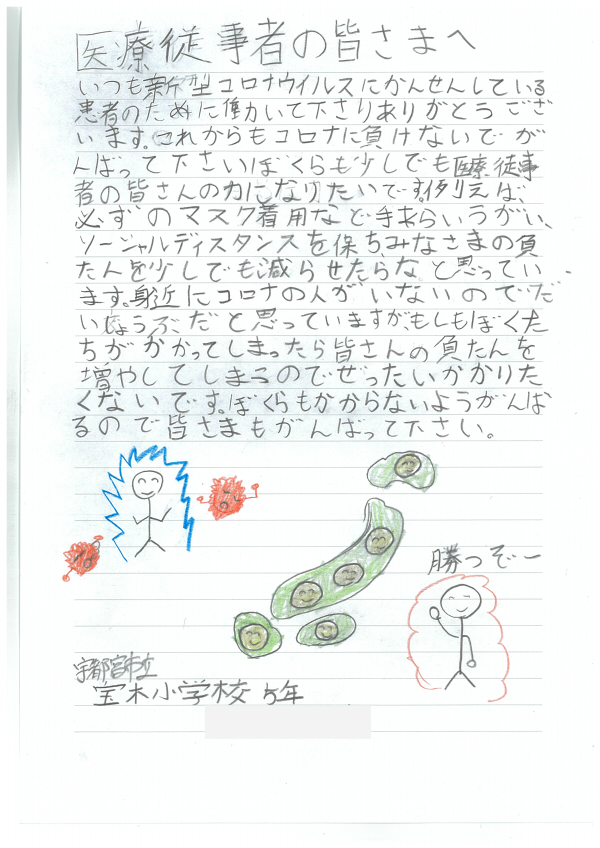 医療従事者の皆さまへ
いつも新型コロナウイルスにかんせんしている
患者のために働いて下さりありがとうござ
います。これからもコロナに負けないでが
んばって下さいぼくらも少しでも医療従事
者の皆さんの力になりたいです。例えば、
必ずのマスク着用など手あらいうがい、
ソーシャルディスタンスを保ちみなさまの負
たんを少しでも減らせたらな、と思ってい
ます。身近にコロナの人がいないのでだ
いじょうぶだと思っていますがもしもぼくた
ちがかかってしまったら皆さんの負たんを
増やしてしまうのでぜったいかかりた
くないです。ぼくらもかからないようがんば
るので皆さまもがんばって下さい。
勝つぞー
宇都宮市立
宝木小学校5年